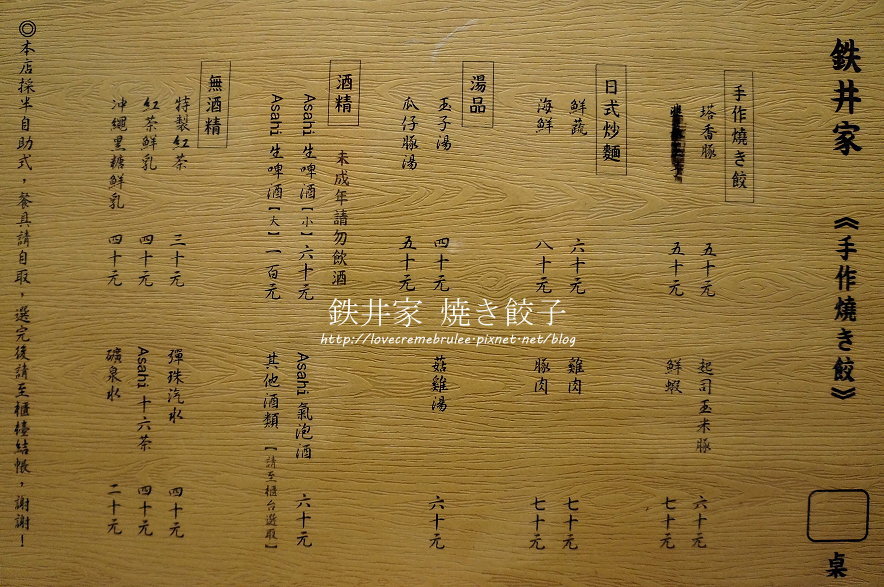 鉄井家 《手作燒き餃》
桌
手作燒き餃
塔香豚 五十元 起司玉米豚 六十元
五十元 鮮蝦 七十元
日式炒麵
鮮蔬 六十元 雞肉 七十元
海鮮 八十元 豚肉 七十元
湯品
玉子湯 四十元 菇雞湯 六十元
瓜仔豚湯 五十元
酒精 未成年請勿飲酒
Asahi 生啤酒【小】六十元 Asahi 氣泡酒 六十元
Asahi 生啤酒【大】一百元 其他酒類【請至櫃台選取】
無酒精
特製紅茶 三十元 彈珠汽水 四十元
紅茶鮮乳 四十元 Asahi 十六茶 四十元
沖繩黑糖鮮乳 四十元 礦泉水 二十元
◎本店採半自助式，餐具請自取，選完後請至櫃檯結帳，謝謝！
鉄井家 焼き餃子
http://lovecremebrulee.pixnet.net/blog